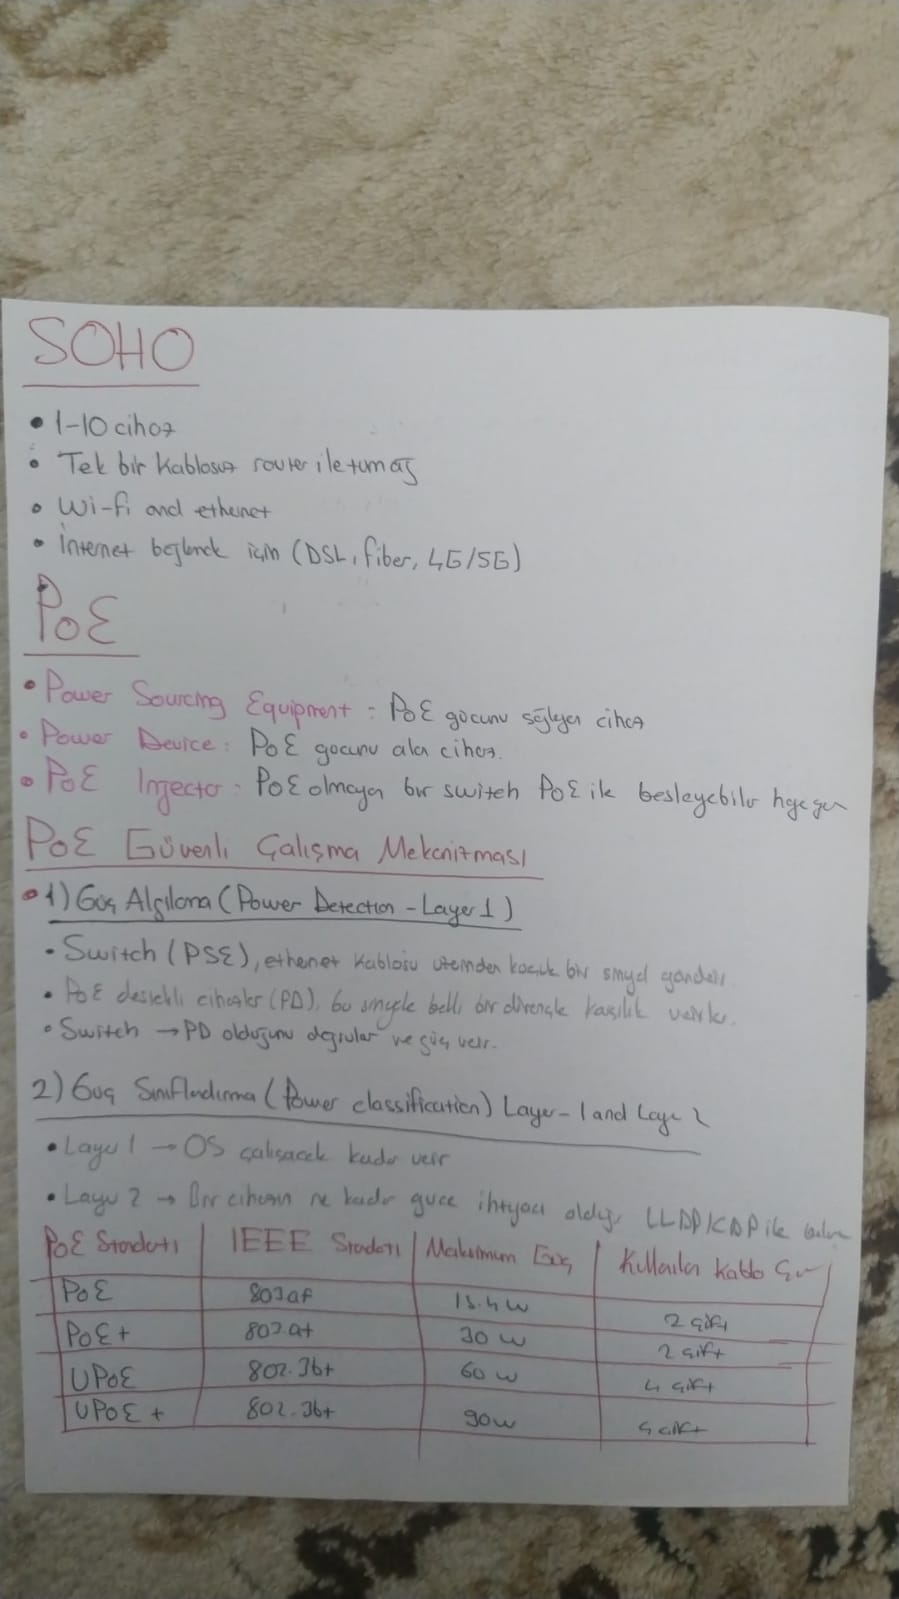 SOHO
• 1-10 cihaz
• Tek bir Kablosuz router ile tüm ağ
• Wi-fi and ethernet
• İnternet bağlamak için (DSL, fiber, 4G/5G)
PoE
• Power Sourcing Equipment : PoE gücünü sağlayan cihaz
• Power Device : PoE gücünü alan cihaz.
• PoE Injector : PoE olmayan bir switch PoE ile besleyebilir
PoE Güvenli Çalışma Mekanizması
• 1) Güç Algılama (Power Detection - Layer 1)
• Switch (PSE), ethernet kablosu üzerinden küçük bir sinyal gönderir.
• PoE destekli cihazlar (PD), bu sinyale belli bir dirençle karşılık verirler.
• Switch → PD olduğunu doğrular ve güç verir.
2) Güç Sınıflandırma (Power classification) Layer-1 and Layer 2
• Layer 1 → OS çalışacak kadar verir
• Layer 2 → Bir cihazın ne kadar güce ihtiyacı olduğu LLDP/CDP ile
PoE Standartı | IEEE Standartı | Maksimum Güç | Kullanılan Kablo
PoE 803af 15.4w 2 çift
PoE+ 802.at 30w 2 çift
UPoE 802.3bt 60w 4 çift
UPoE+ 802.3bt 90w 4 çift